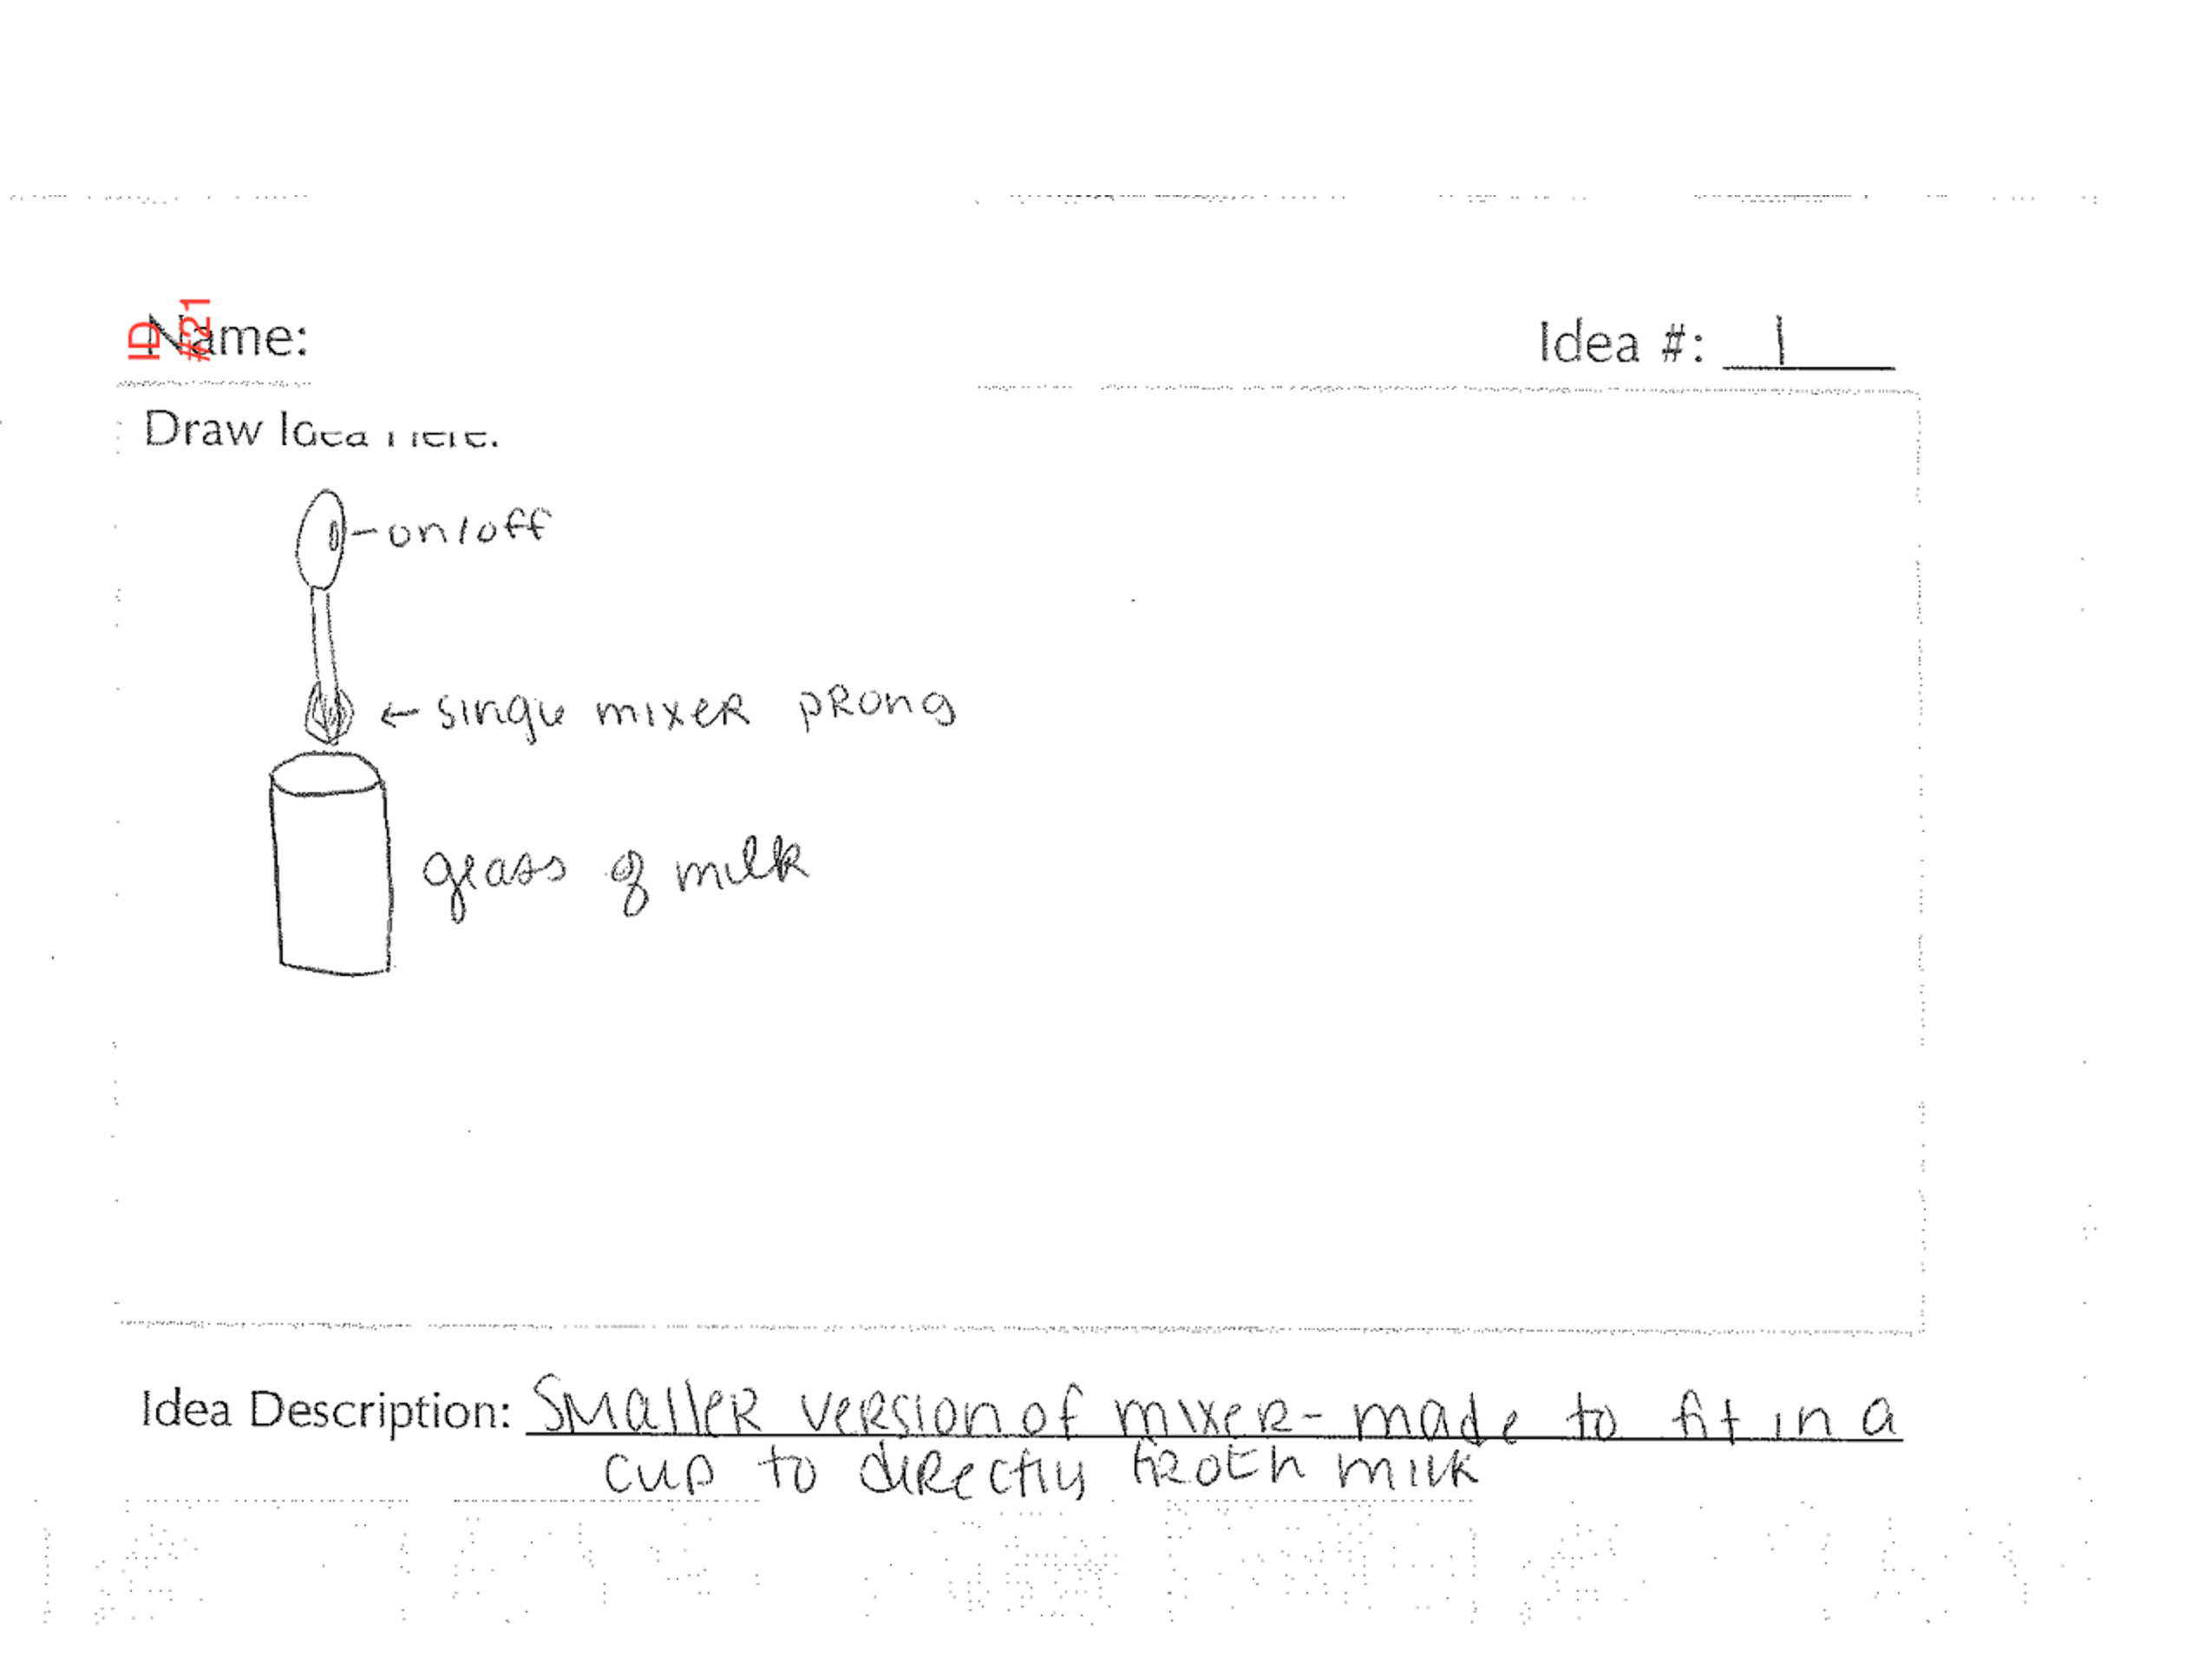 ID
#21
Name:
Idea #: 1
Draw Idea Here:
-on/off
← single mixer prong
glass of milk
Idea Description: Smaller version of mixer- made to fit in a
cup to directly froth milk